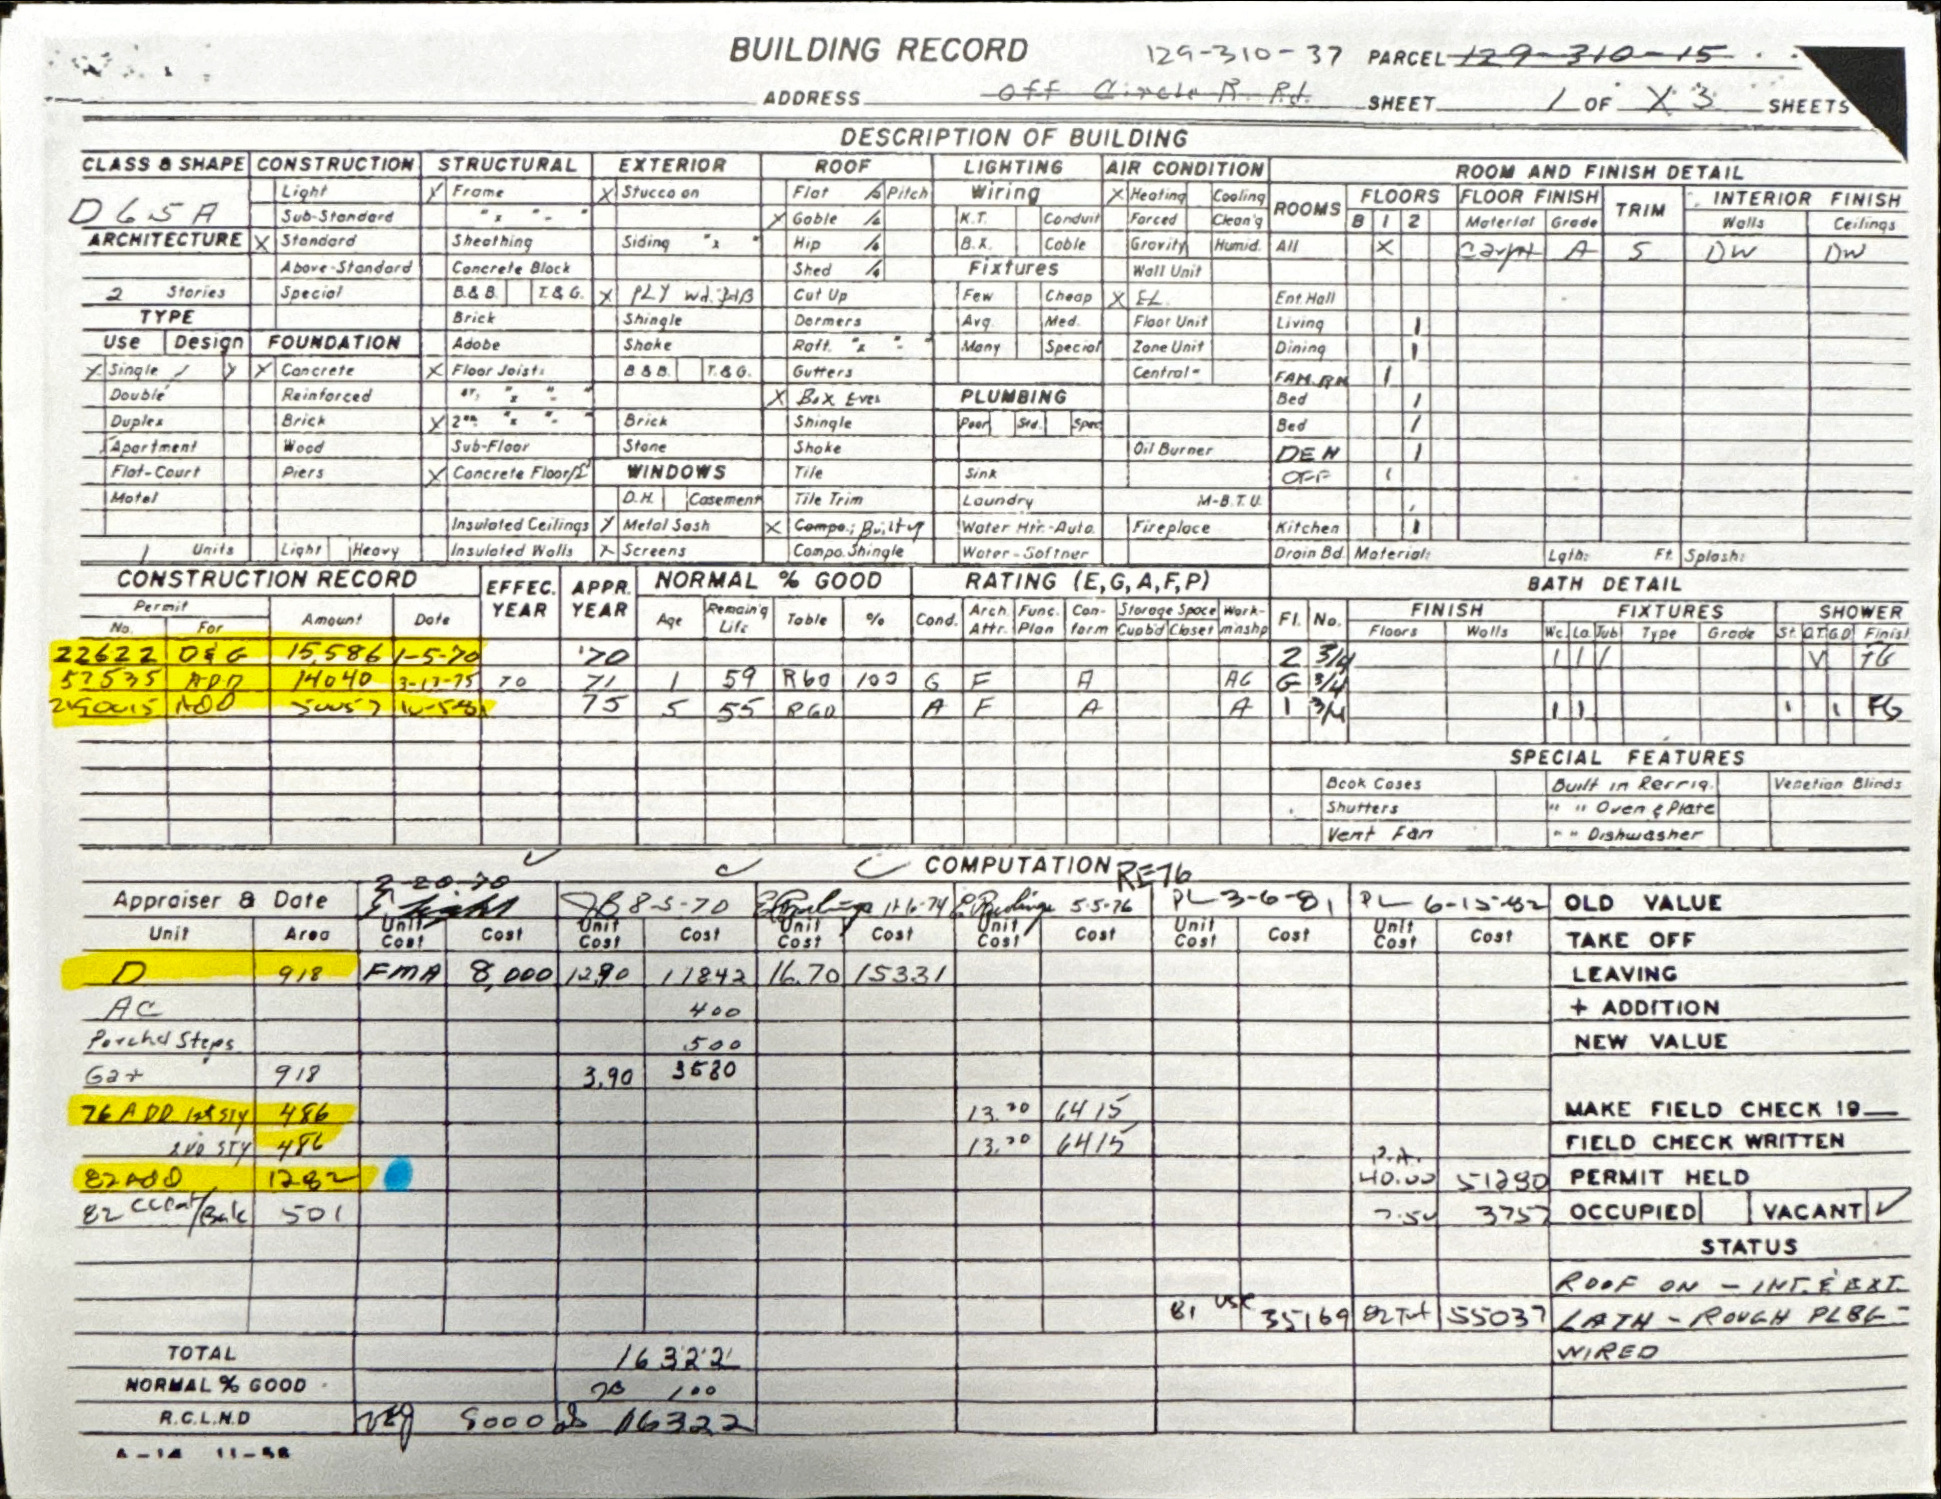 BUILDING RECORD 129-310-37 PARCEL 129-310-15
ADDRESS Off Circle R. Rd. SHEET 1 OF X 3 SHEETS
DESCRIPTION OF BUILDING
CLASS & SHAPE CONSTRUCTION STRUCTURAL EXTERIOR ROOF LIGHTING AIR CONDITION ROOM AND FINISH DETAIL
Light X Frame X Stucco on Flat Pitch Wiring X Heating Cooling ROOMS FLOORS FLOOR FINISH TRIM INTERIOR FINISH
D65A Sub-Standard " x " - " X Gable K.T. Conduit Forced Clean'g B 1 2 Material Grade Walls Ceilings
ARCHITECTURE X Standard Sheathing Siding "x " Hip B.X. Cable Gravity Humid. All X Carpt A S DW DW
Above-Standard Concrete Block Shed Fixtures Wall Unit
2 Stories Special B.& B. T.& G. X PLY Wd. Cut Up Few Cheap X EL. Ent. Hall
TYPE Brick Shingle Dormers Avg. Med. Floor Unit Living 1
Use Design FOUNDATION Adobe Shake Raft. "x " - " Many Special Zone Unit Dining 1
X Single X Concrete X Floor Joist: B & B. T.& G. Gutters Central- FAM. RM 1
Double Reinforced " x " - " X Box Eves PLUMBING Bed 1
Duplex Brick X 2nd " x " - " Brick Shingle Poor Std. Spec Bed 1
Apartment Wood Sub-Floor Stone Shake Oil Burner DEN 1
Flat-Court Piers X Concrete Floor WINDOWS Tile Sink OFF 1
Motel D.H. Casement Tile Trim Laundry M-B.T.U.
Insulated Ceilings X Metal Sash X Compo.; Built up Water Htr.-Auto. Fireplace Kitchen 1
1 Units Light Heavy Insulated Walls X Screens Compo. Shingle Water-Softner Drain Bd. Material: Lgth: Ft. Splash:
CONSTRUCTION RECORD EFFEC. YEAR APPR. YEAR NORMAL % GOOD RATING (E,G,A,F,P) BATH DETAIL
Permit Amount Date Age Remain'g Life Table % Cond. Arch. Attr. Func. Plan Con-form Storage Space Work-minshp Fl. No. FINISH FIXTURES SHOWER
No. For Cupb'd Closet Floors Walls Wc. La. Tub Type Grade St. O.T. G.D Finish
22622 D&G 15,586 1-5-70 '70 2 3/4 1 1 1 TG
57535 ADD 14040 3-13-75 70 71 1 59 R60 100 G F A AG G 3/4
ADD 10-5- 75 5 55 R60 A F A A 1 3/4 1 1 1 1 FG
SPECIAL FEATURES
Book Cases Built in Rerrig. Venetian Blinds
Shutters " " Oven & Plate
Vent Fan " " Dishwasher
COMPUTATION RE76
Appraiser & Date 2-20-70 JB 8-5-70 11-6-74 5-5-76 PL-3-6-81 PL 6-15-82 OLD VALUE
Unit Area Unit Cost Cost Unit Cost Cost Unit Cost Cost Unit Cost Cost Unit Cost Cost Unit Cost Cost TAKE OFF
D 918 FMA 8,000 12.90 11842 16.70 15331 LEAVING
AC 400 + ADDITION
Porch & Steps 500 NEW VALUE
Gar 918 3.90 3580
76 ADD 1st STY 486 13.20 6415 MAKE FIELD CHECK 19
2ND STY 486 13.20 6415 FIELD CHECK WRITTEN
82 ADD 1282 P.A. 40.00 51280 PERMIT HELD
82 501 7.50 3757 OCCUPIED VACANT ✓
STATUS
ROOF ON - INT. & EXT.
81 USE 35169 82 Tot 55037 LATH - ROUGH PLBG -
TOTAL 16322 WIRED
NORMAL % GOOD 100
R.C.L.N.D 8000 16322
A-14 11-58